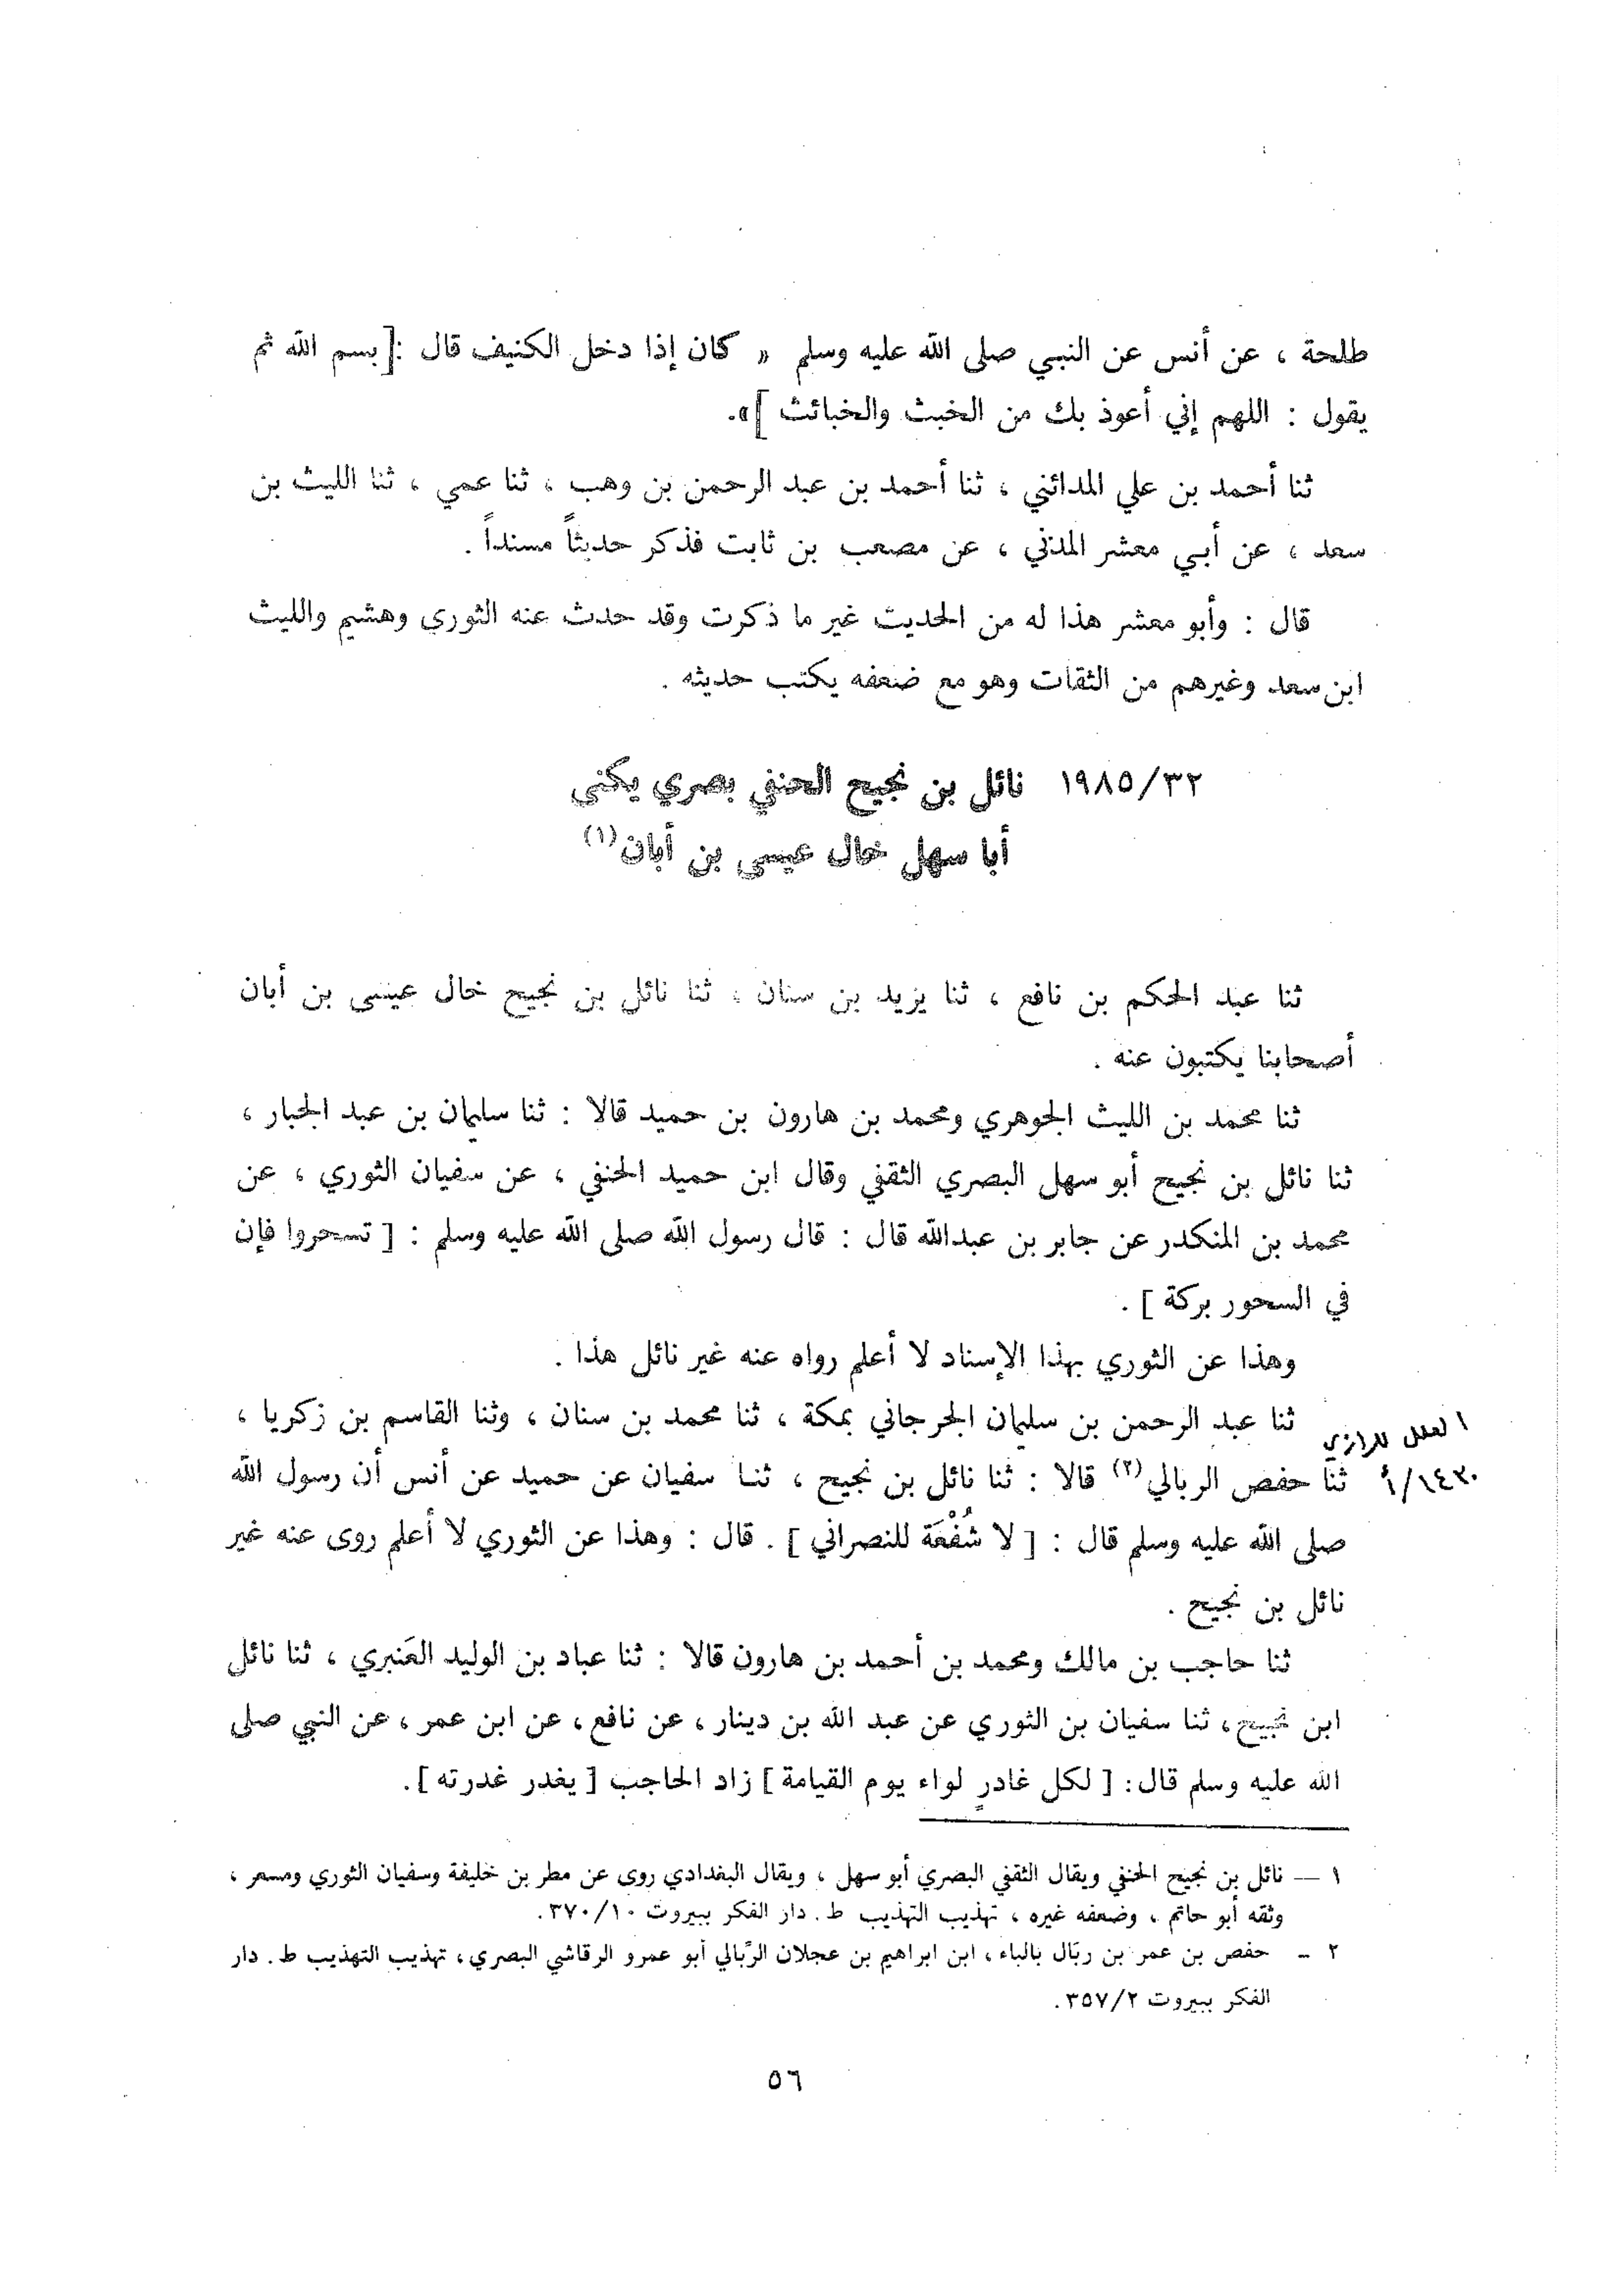 طلحة ، عن أنس عن النبي صلى الله عليه وسلم « كان إذا دخل الكنيف قال :[ بسم الله ثم
يقول : اللهم إني أعوذ بك من الخبث والخبائث ]».
ثنا أحمد بن علي المدائني ، ثنا أحمد بن عبد الرحمن بن وهب ، ثنا عمي ، ثنا الليث بن
سعد ، عن أبي معشر المدني ، عن مصعب بن ثابت فذكر حديثاً مسنداً .
قال : وأبو معشر هذا له من الحديث غير ما ذكرت وقد حدث عنه الثوري وهشيم والليث
ابن سعد وغيرهم من الثقات وهو مع ضعفه يكتب حديثه .
١٩٨٥/٣٢ نائل بن نجيح الحنفي بصري يكنى
أبا سهل خال عيسى بن أبان(١)
ثنا عبد الحكم بن نافع ، ثنا يزيد بن سنان ، ثنا نائل بن نجيح خال عيسى بن أبان
أصحابنا يكتبون عنه .
ثنا محمد بن الليث الجوهري ومحمد بن هارون بن حميد قالا : ثنا سليمان بن عبد الجبار ،
ثنا نائل بن نجيح أبو سهل البصري الثقفي وقال ابن حميد الحنفي ، عن سفيان الثوري ، عن
محمد بن المنكدر عن جابر بن عبدالله قال : قال رسول الله صلى الله عليه وسلم : [ تسحروا فإن
في السحور بركة ] .
وهذا عن الثوري بهذا الإسناد لا أعلم رواه عنه غير نائل هذا .
ثنا عبد الرحمن بن سليمان الجرجاني بمكة ، ثنا محمد بن سنان ، وثنا القاسم بن زكريا ،
العلل للرازي
١٤٣٠/أ
ثنا حفص الربالي(٢) قالا : ثنا نائل بن نجيح ، ثنا سفيان عن حميد عن أنس أن رسول الله
صلى الله عليه وسلم قال : [ لا شُفْعَة للنصراني ] . قال : وهذا عن الثوري لا أعلم روى عنه غير
نائل بن نجيح .
ثنا حاجب بن مالك ومحمد بن أحمد بن هارون قالا : ثنا عباد بن الوليد العَنبري ، ثنا نائل
ابن نجيح، ثنا سفيان بن الثوري عن عبد الله بن دينار ، عن نافع، عن ابن عمر ، عن النبي صلى
الله عليه وسلم قال: [ لكل غادرٍ لواء يوم القيامة ] زاد الحاجب [ يغدر غدرته ].
١ — نائل بن نجيح الحنفي ويقال الثقفي البصري أبو سهل ، ويقال البغدادي روى عن مطر بن خليفة وسفيان الثوري ومسعر ،
وثقه أبو حاتم ، وضعفه غيره ، تهذيب التهذيب ط. دار الفكر ببيروت ٣٧٠/١٠.
٢ - حفص بن عمر بن ربَال بالباء ، ابن ابراهيم بن عجلان الرَّبالي أبو عمرو الرقاشي البصري، تهذيب التهذيب ط. دار
الفكر ببيروت ٣٥٧/٢.
٥٦